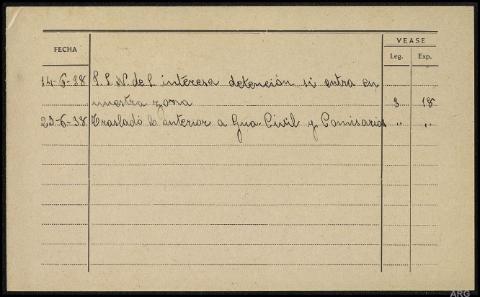 VEASE
FECHA Leg. Exp.
14-6-38 S.I.N. de S. interesa detención si entra en
nuestra zona 3 18
23-6-38 Traslado lo anterior a Gua. Civil y Comisarias " "
ARG